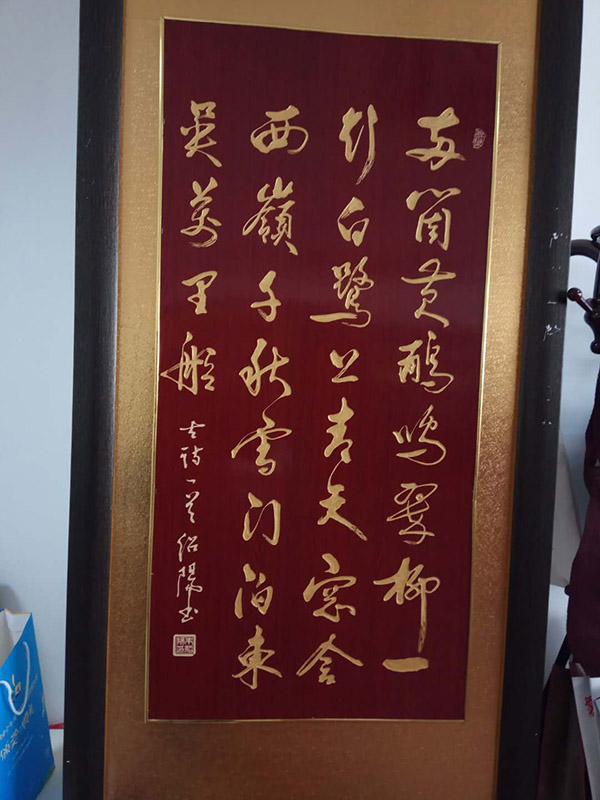 两箇黄鹂鸣翠柳一
行白鹭上青天窓含
西嶺千秋雪门泊东
吴万里船
古诗一首绍阳书